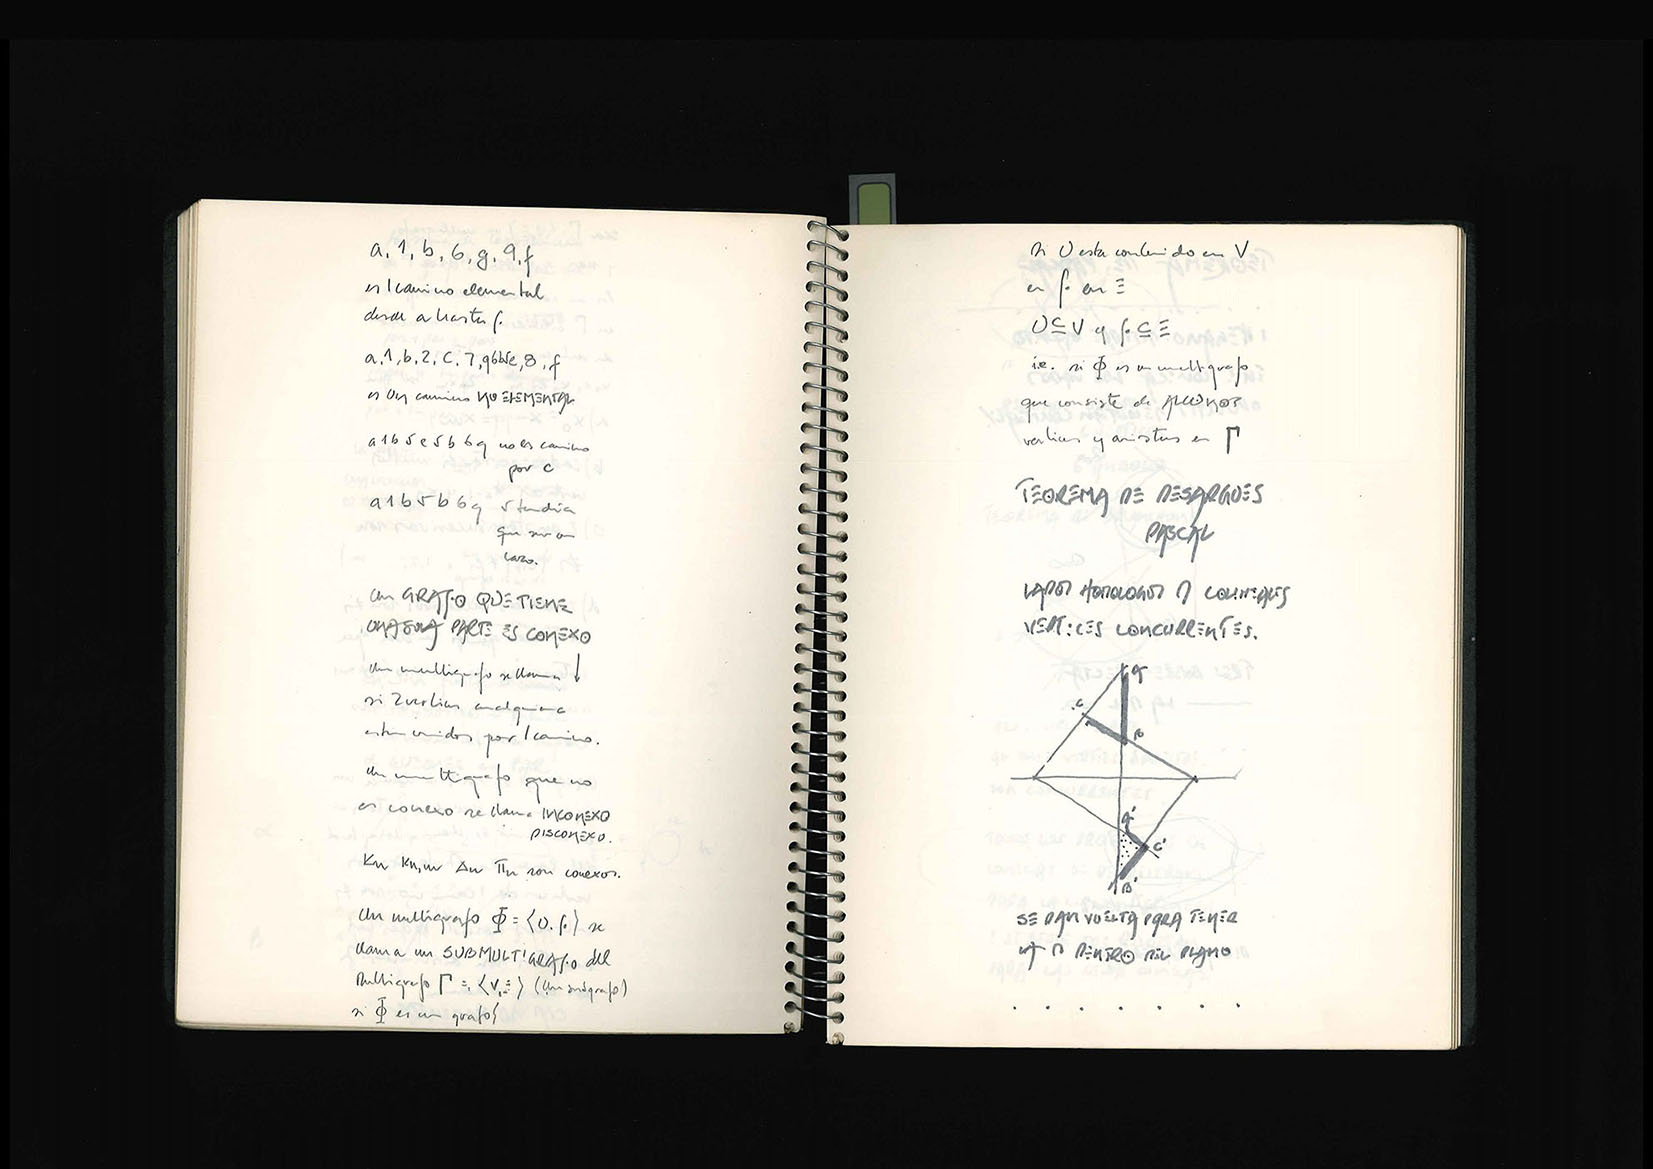 a, 1, b, 6, g, 9, f
es 1 camino elemental
desde a hasta f.
a, 1, b, 2, c, 7, g6b5e, 8, f
es un camino NO ELEMENTAL
a1b5e5b6g no es camino
por c
a1b5b6g tendría
que ser un
lazo.
un GRAFO QUE TIENE
UNA SOLA PARTE ES CONEXO
un multigrafo se llama ↓
si 2 vertices cualquiera
estan unidos por 1 camino.
un multigrafo que no
es conexo se llama INCONEXO
DISCONEXO.
Kn Kn,m Δn Πn son conexos.
Un multigrafo Φ = ⟨U, f.⟩ se
llama un SUBMULTIGRAFO del
Multigrafo Γ = ⟨V, Ξ⟩ (un grafo)
si Φ es un grafo
si U esta contenido en V
en f. en Ξ
U ⊆ V y f. ⊆ Ξ
i.e. si Φ es un multigrafo
que consiste de ALGUNOS
vertices y aristas en Γ
TEOREMA DE DESARGUES
PASCAL
LADOS HOMOLOGOS ∩ COLINEALES
VERTICES CONCURRENTES.
A
C
B
A'
C'
B'
SE DAN VUELTA PARA TENER
∩ DENTRO DEL PLANO
. . . . . . .